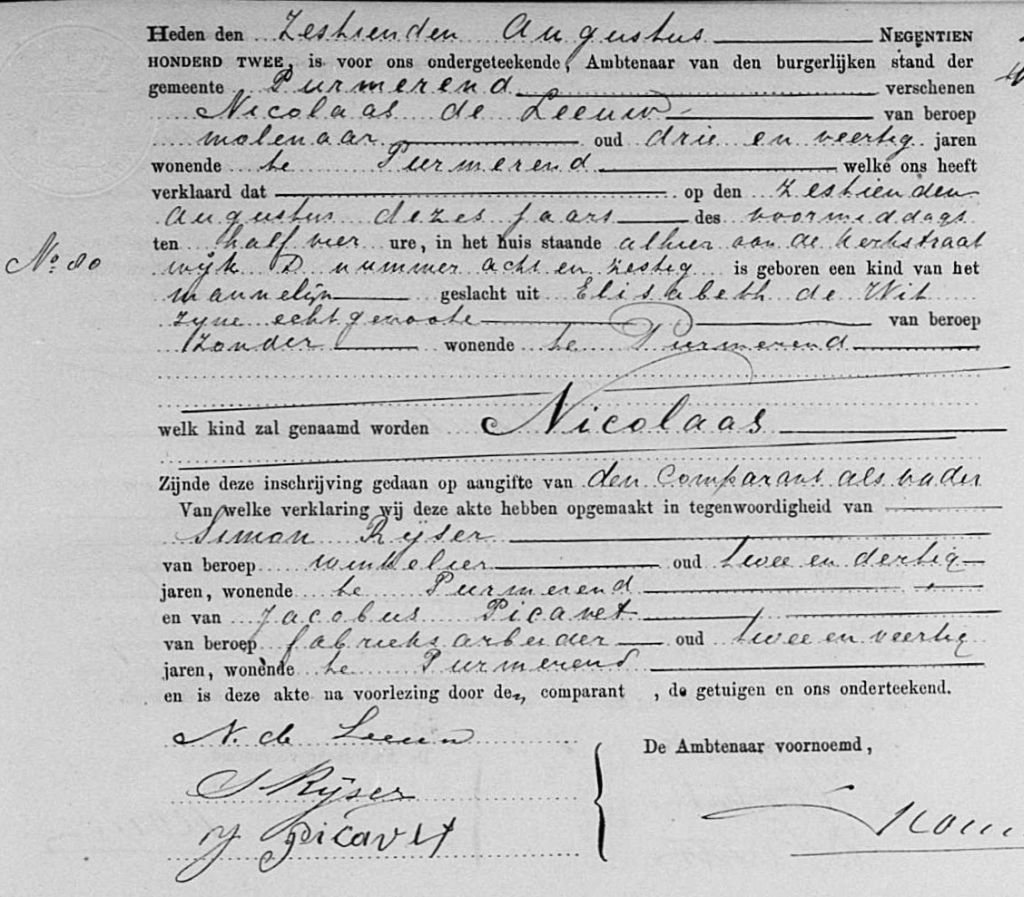 Heden den Zestienden Augustus NEGENTIEN
HONDERD TWEE, is voor ons ondergeteekende, Ambtenaar van den burgerlijken stand der
gemeente Purmerend verschenen
Nicolaas de Leeuw van beroep
molenaar oud drie en veertig jaren
wonende te Purmerend welke ons heeft
verklaard dat op den Zestienden
Augustus dezes jaars des voormiddags
ten half vier ure, in het huis staande alhier aan de Kerkstraat
No. 80 wijk D nummer acht en zestig is geboren een kind van het
mannelijk geslacht uit Elisabeth de Wit
zijne echtgenoote van beroep
zonder wonende te Purmerend
welk kind zal genaamd worden Nicolaas
Zijnde deze inschrijving gedaan op aangifte van den Comparant als vader
Van welke verklaring wij deze akte hebben opgemaakt in tegenwoordigheid van
Simon Rijser
van beroep winkelier oud twee en dertig
jaren, wonende te Purmerend
en van Jacobus Picavet
van beroep fabrieksarbeider oud twee en veertig
jaren, wonende te Purmerend
en is deze akte na voorlezing door den, comparant , de getuigen en ons onderteekend.
N. de Leeuw
De Ambtenaar voornoemd,
S Rijser
J Picavet